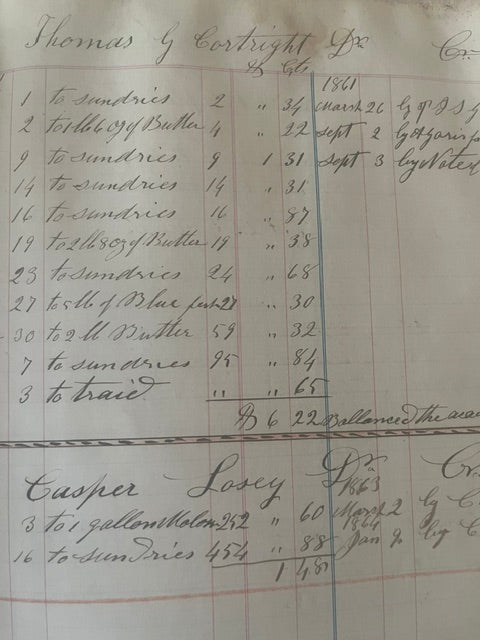 Thomas G Cortright Dr Cr
$ Cts
1861
1 to sundries 2 " 34 March 26 by
2 to 1 lb 6 oz of Butter 4 " 22 Sept 2 by
9 to sundries 9 1 31 Sept 3 by Note
14 to sundries 14 " 31
16 to sundries 16 " 87
19 to 2 lb 8 oz of Butter 19 " 38
23 to sundries 24 " 68
27 to 5 lb of Blue 27 " 30
30 to 2 lb Butter 59 " 32
7 to sundries 95 " 84
3 to traid " " 65
$ 6 22 Ballanced the
Casper Losey Dr Cr
1863
3 to 1 gallon 252 " 60 March 2 by C
1864
16 to sundries 454 " 88 Jan 9 by C
1 48